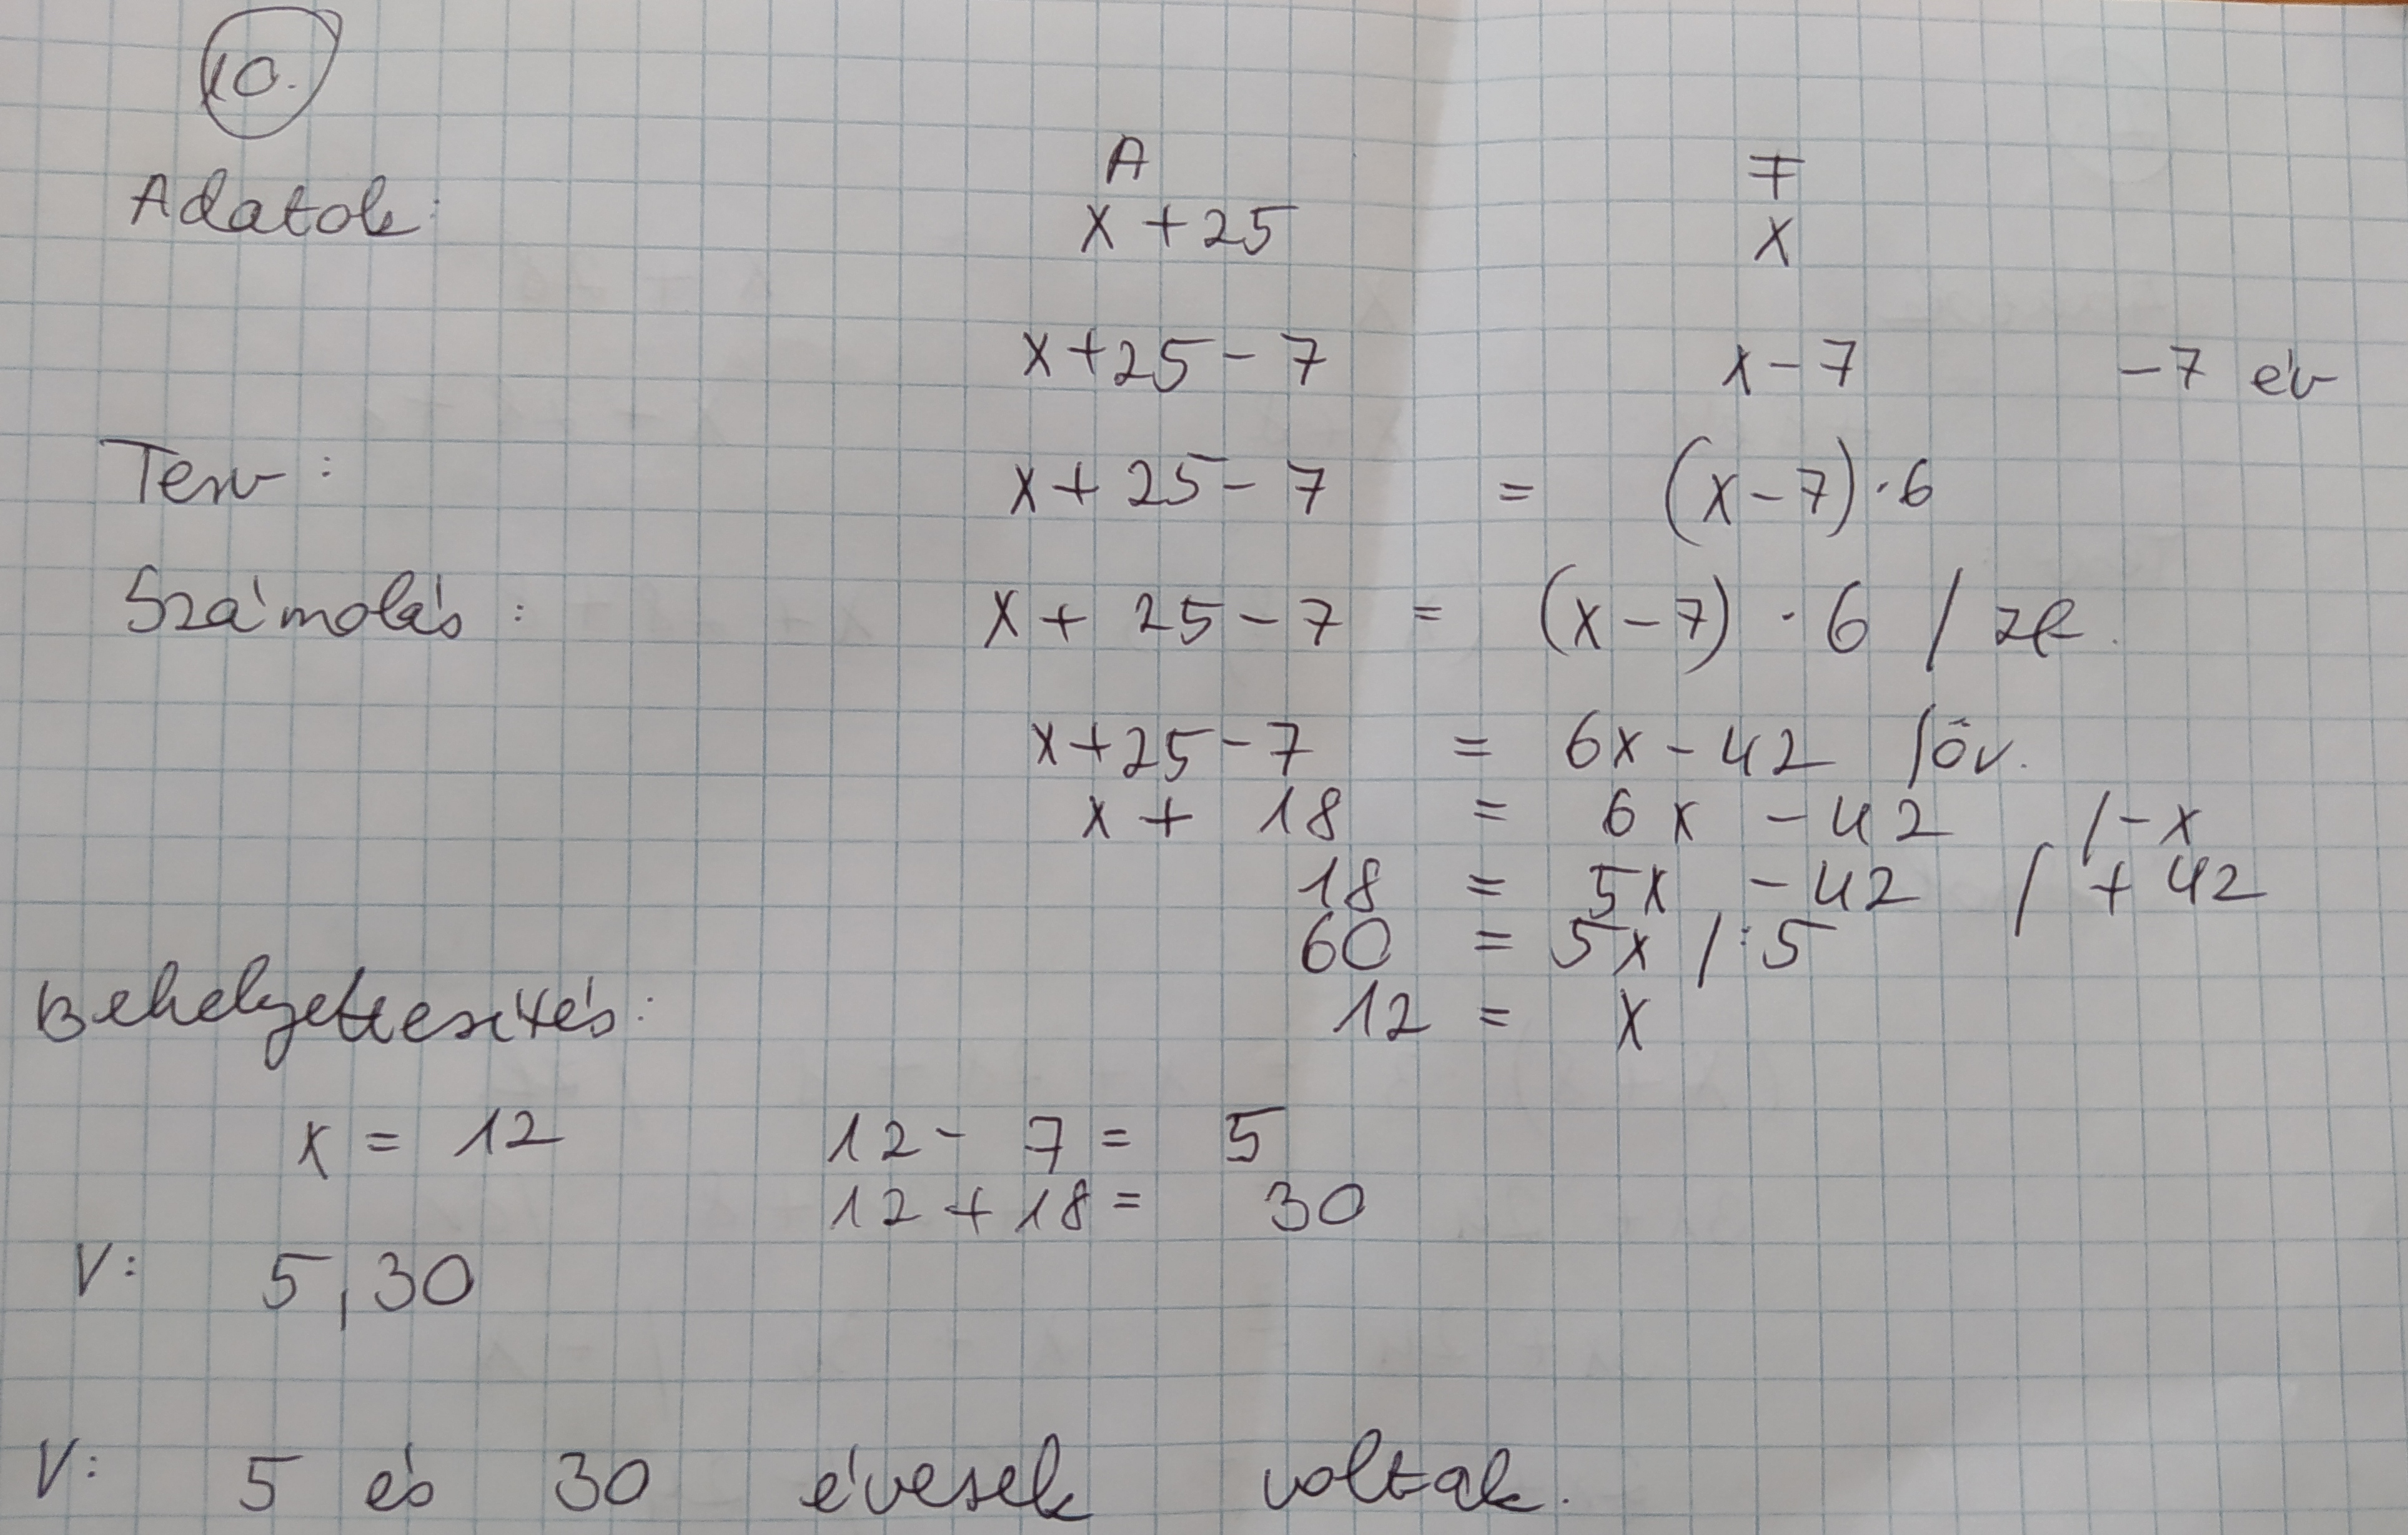 10.
A F
Adatok: x + 25 x
x + 25 - 7 x - 7 - 7 év
Terv: x + 25 - 7 = (x - 7) · 6
Számolás: x + 25 - 7 = (x - 7) · 6 / zf.
x + 25 - 7 = 6x - 42 / öv.
x + 18 = 6x - 42 / - x
18 = 5x - 42 / + 42
60 = 5x / : 5
Behelyettesítés: 12 = x
x = 12 12 - 7 = 5
12 + 18 = 30
V: 5, 30
V: 5 és 30 évesek voltak.